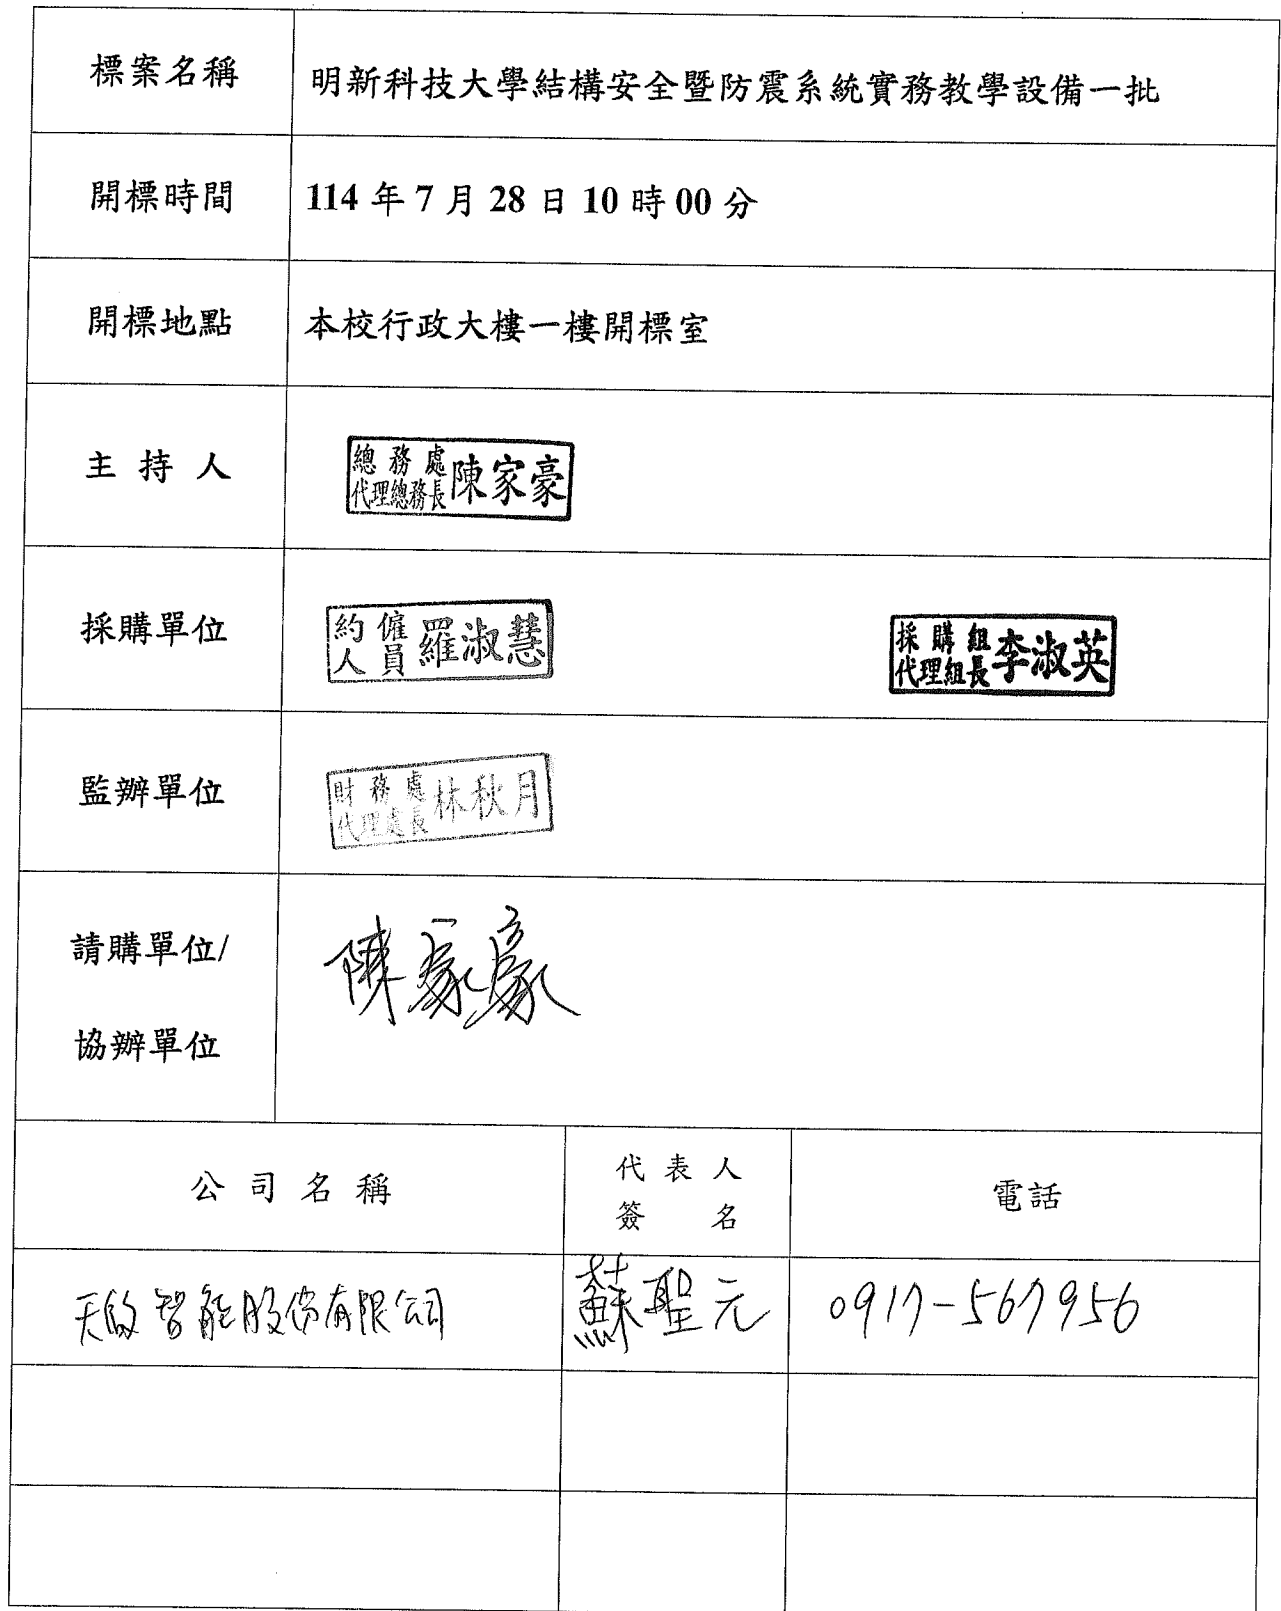 標案名稱 明新科技大學結構安全暨防震系統實務教學設備一批
開標時間 114 年 7 月 28 日 10 時 00 分
開標地點 本校行政大樓一樓開標室
主 持 人 總務處 代理總務長 陳家豪
採購單位 約僱人員 羅淑慧 採購組 代理組長 李淑英
監辦單位 財務處 代理處長 林秋月
請購單位/ 陳家豪
協辦單位
公司名稱 代表人簽名 電話
天啟智能股份有限公司 蘇聖元 0917-567956